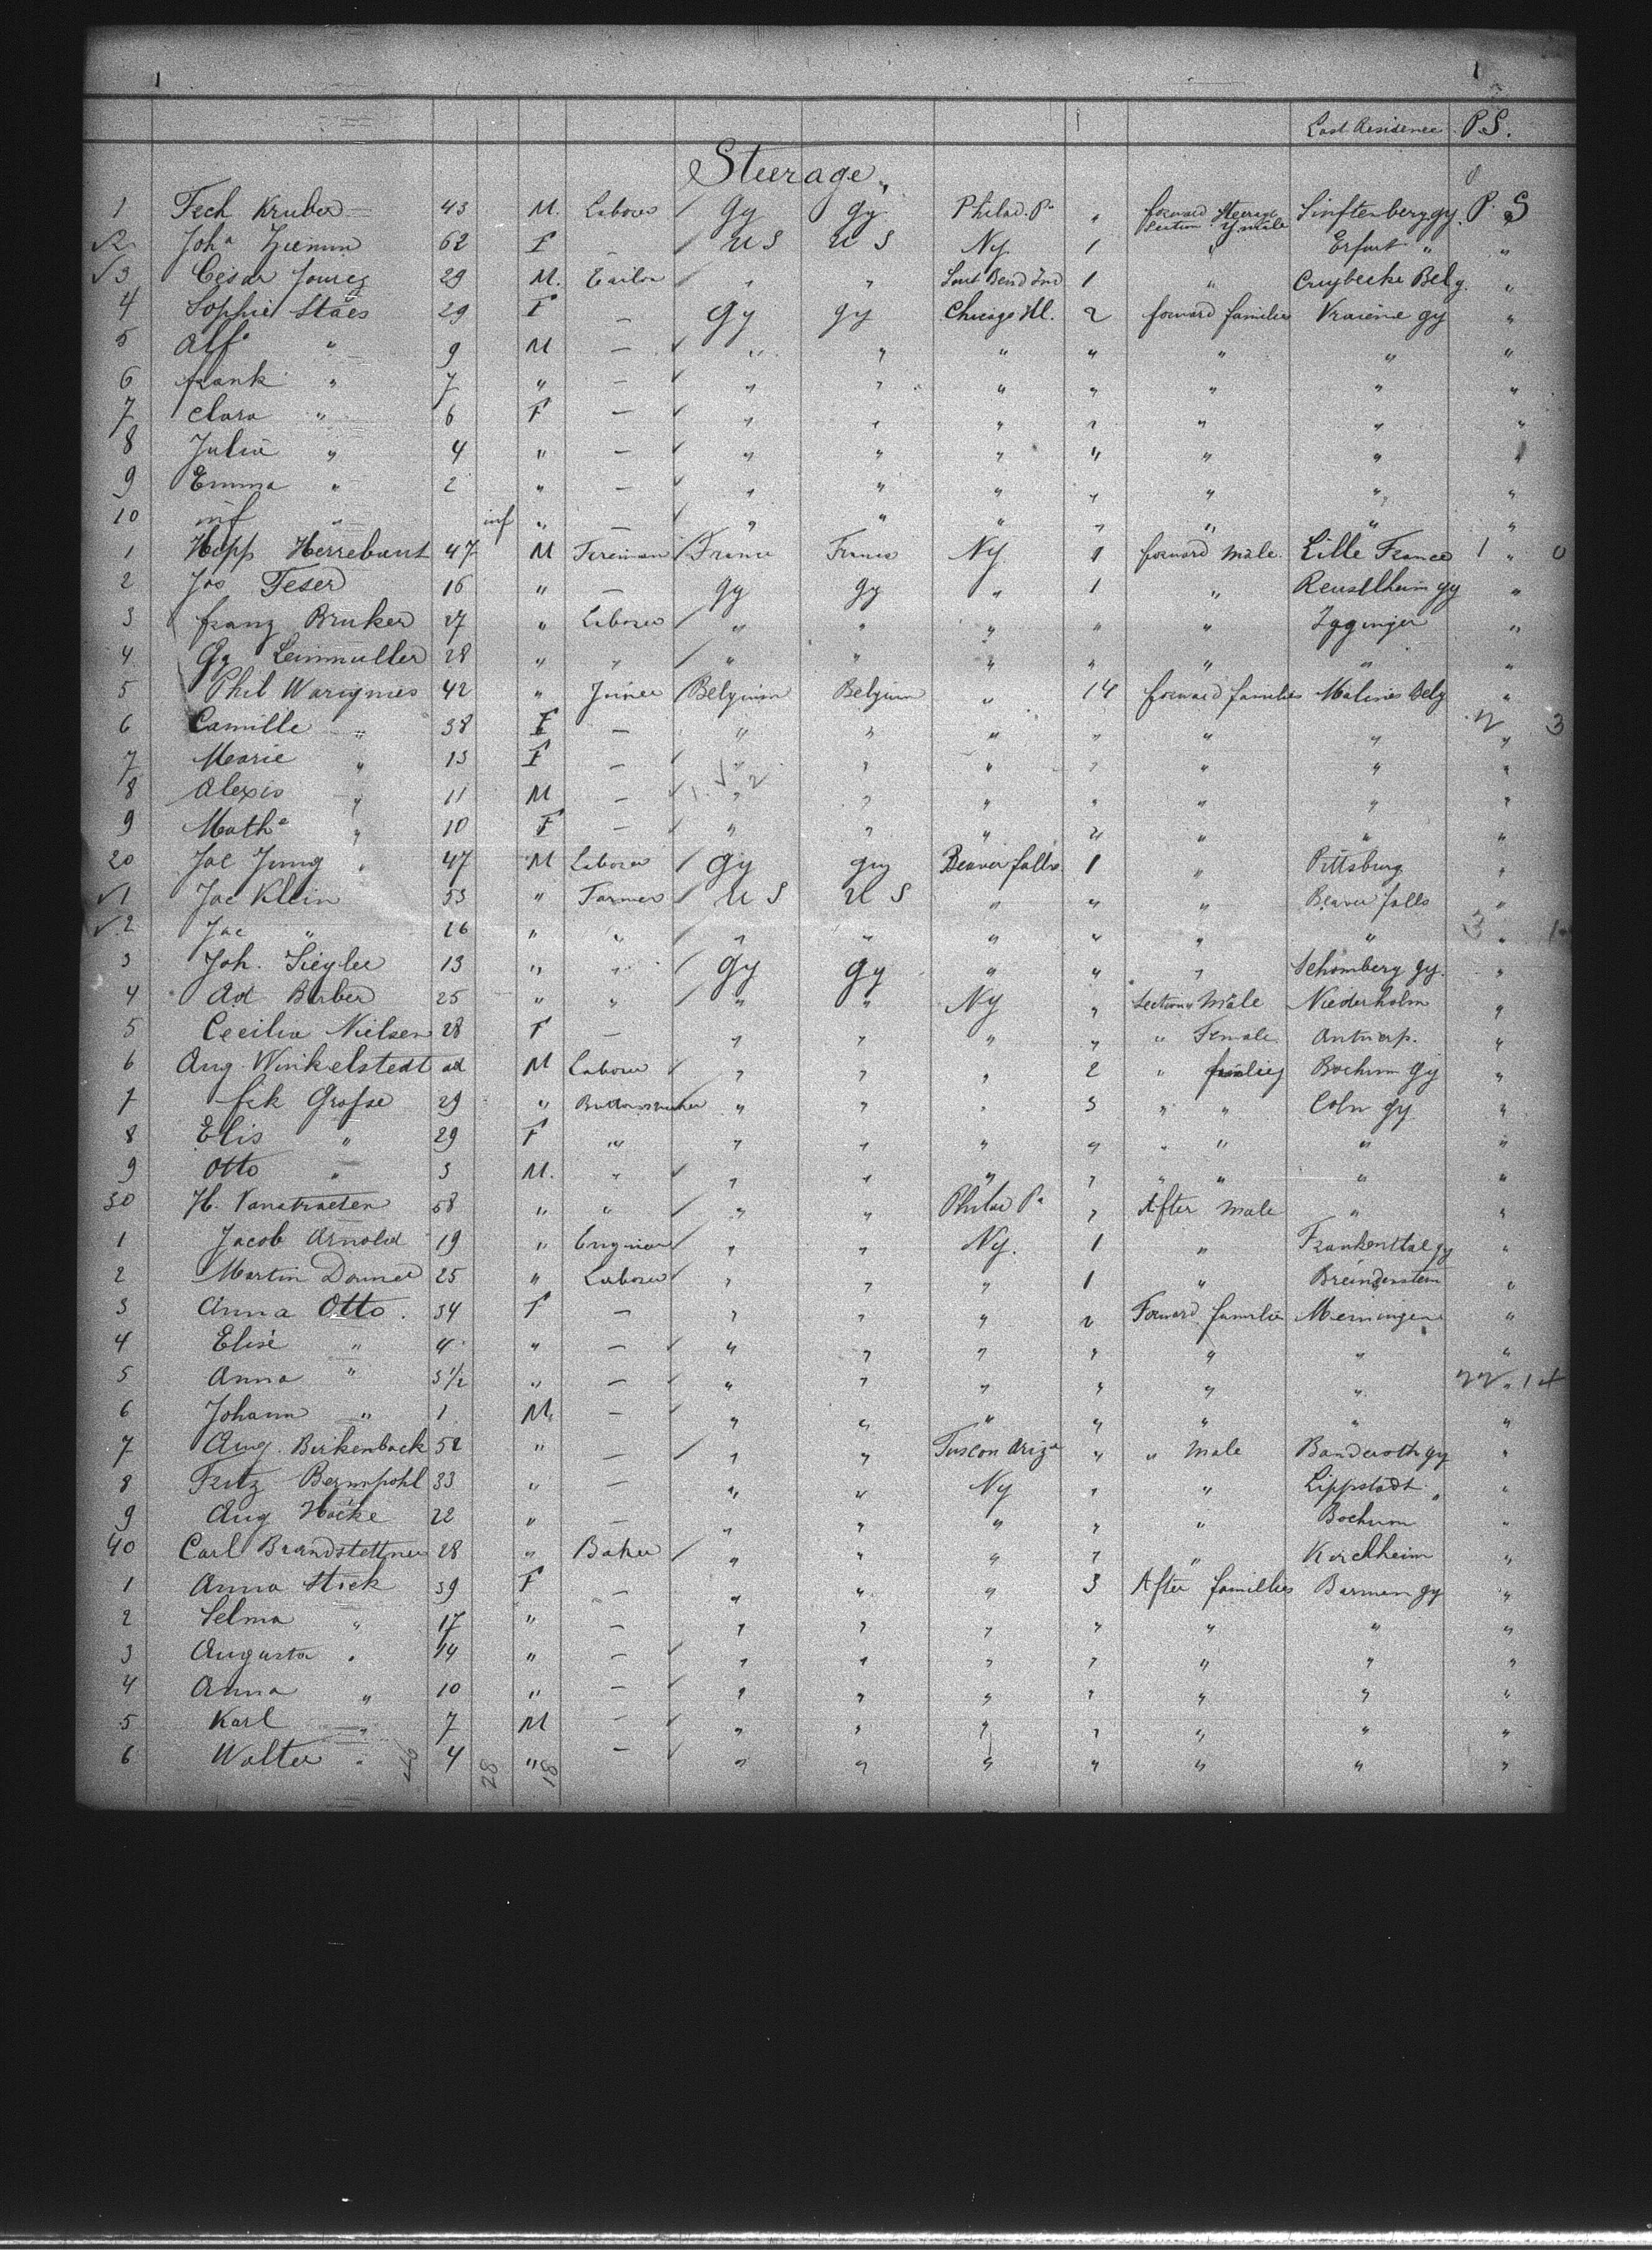 1 1
Last Residence P.S.
Steerage,
1 Fech Kruber 43 M. Laborer / Gy Gy Philad. Pa " forward Steerage Section Y male Sinftenberg gy. P. S
√2 Joh a Ziemm 62 F — / U S U S Ny. 1 " Erfurt " "
√3 Cesar Jourez 29 M. Tailor / " " Sout Bend Ind 1 " Cruybecke Belg. "
4 Sophie Staes 29 F — Gy gy Chicago Ill. 2 forward families Vraiene gy "
5 Alf " 9 M — ✓ " " " " " " "
6 frank " 7 " — ✓ " " " " " " "
7 Clara " 6 F — ✓ " " " " " " "
8 Julia " 4 " — ✓ " " " " " " "
9 Emma " 2 " — ✓ " " " " " " "
10 inf " inf " — ✓ " " " " " " "
1 Hipp Herrebaut 47 M Fireman / France France Ny. 1 forward male. Lille France 1 " 0
2 Jos Feser 16 " — gy gy " 1 " gy "
3 franz Bruker 27 " Laborer / " " " " " Igginger "
4 Gg Leinmuller 28 " " / " " " " " " "
5 Phil Warignies 42 " / Belgium Belgium " 14 forward families Malines Belg "
6 Camille " 38 F — " " " " " " " 3
7 Marie " 13 F — ✓ " " " " " " "
8 Alexis " 11 M — ✓ " " " " " " "
9 Math e " 10 F — ✓ " " " " " " "
20 Jac Jung 47 M Laborer / gy gy Beaver falls 1 " Pittsburg "
√1 Jac Klein 53 " Farmer / U S U S " " " Beaver falls "
√2 Jac " 26 " " / " " " " " " 3 " 1
3 Joh. Siegler 13 " " / gy gy " " " Schomberg gy. "
4 Ad Barber 25 " " / " " Ny " Section " Male Niederholm "
5 Cecilia Nielsen 28 F — " " " " " Female Antwerp. "
6 Aug. Winkelstedt ad M Laborer ✓ " " " 2 " families Bochum gy "
7 fck Grosse 29 " " " " 3 " " Coln gy "
8 Elis " 29 F " " " " " " " " "
9 Otto " 3 M. " ✓ " " " " " " " "
30 H. Vanstraeten 58 " " / " " Philad Pa " After male " "
1 Jacob Arnold 19 " / " " Ny. 1 " Frankenthal gy "
2 Martin Donner 25 " Laborer / " " " 1 " "
3 Anna Otto. 34 F — " " " 2 Forward. families Meiningen "
4 Elise " 4 " — ✓ " " " " " " "
5 Anna " 3½ " — ✓ " " " " " "
6 Johann " 1 M. — ✓ " " " " " " "
7 Aug. Birkenback 52 " — / " " Tuscon Ariz a " " male gy "
8 Fritz Bermpohl 33 " — " " Ny " " Lippstadt " "
9 Aug Hocke 22 " — " " " " " Bochum "
40 Carl Brandstettner 28 " Baker / " " " " " Kirchheim "
1 Anna Stick 39 F — " " " 3 After families Barmen gy "
2 Selma " 17 " — " " " " " " "
3 Augusta " 14 " — ✓ " " " " " " "
4 Anna " 10 " — ✓ " " " " " " "
5 Karl " 7 M — ✓ " " " " " " "
6 Walter " 4 " — ✓ " " " " " " "
46 28 18